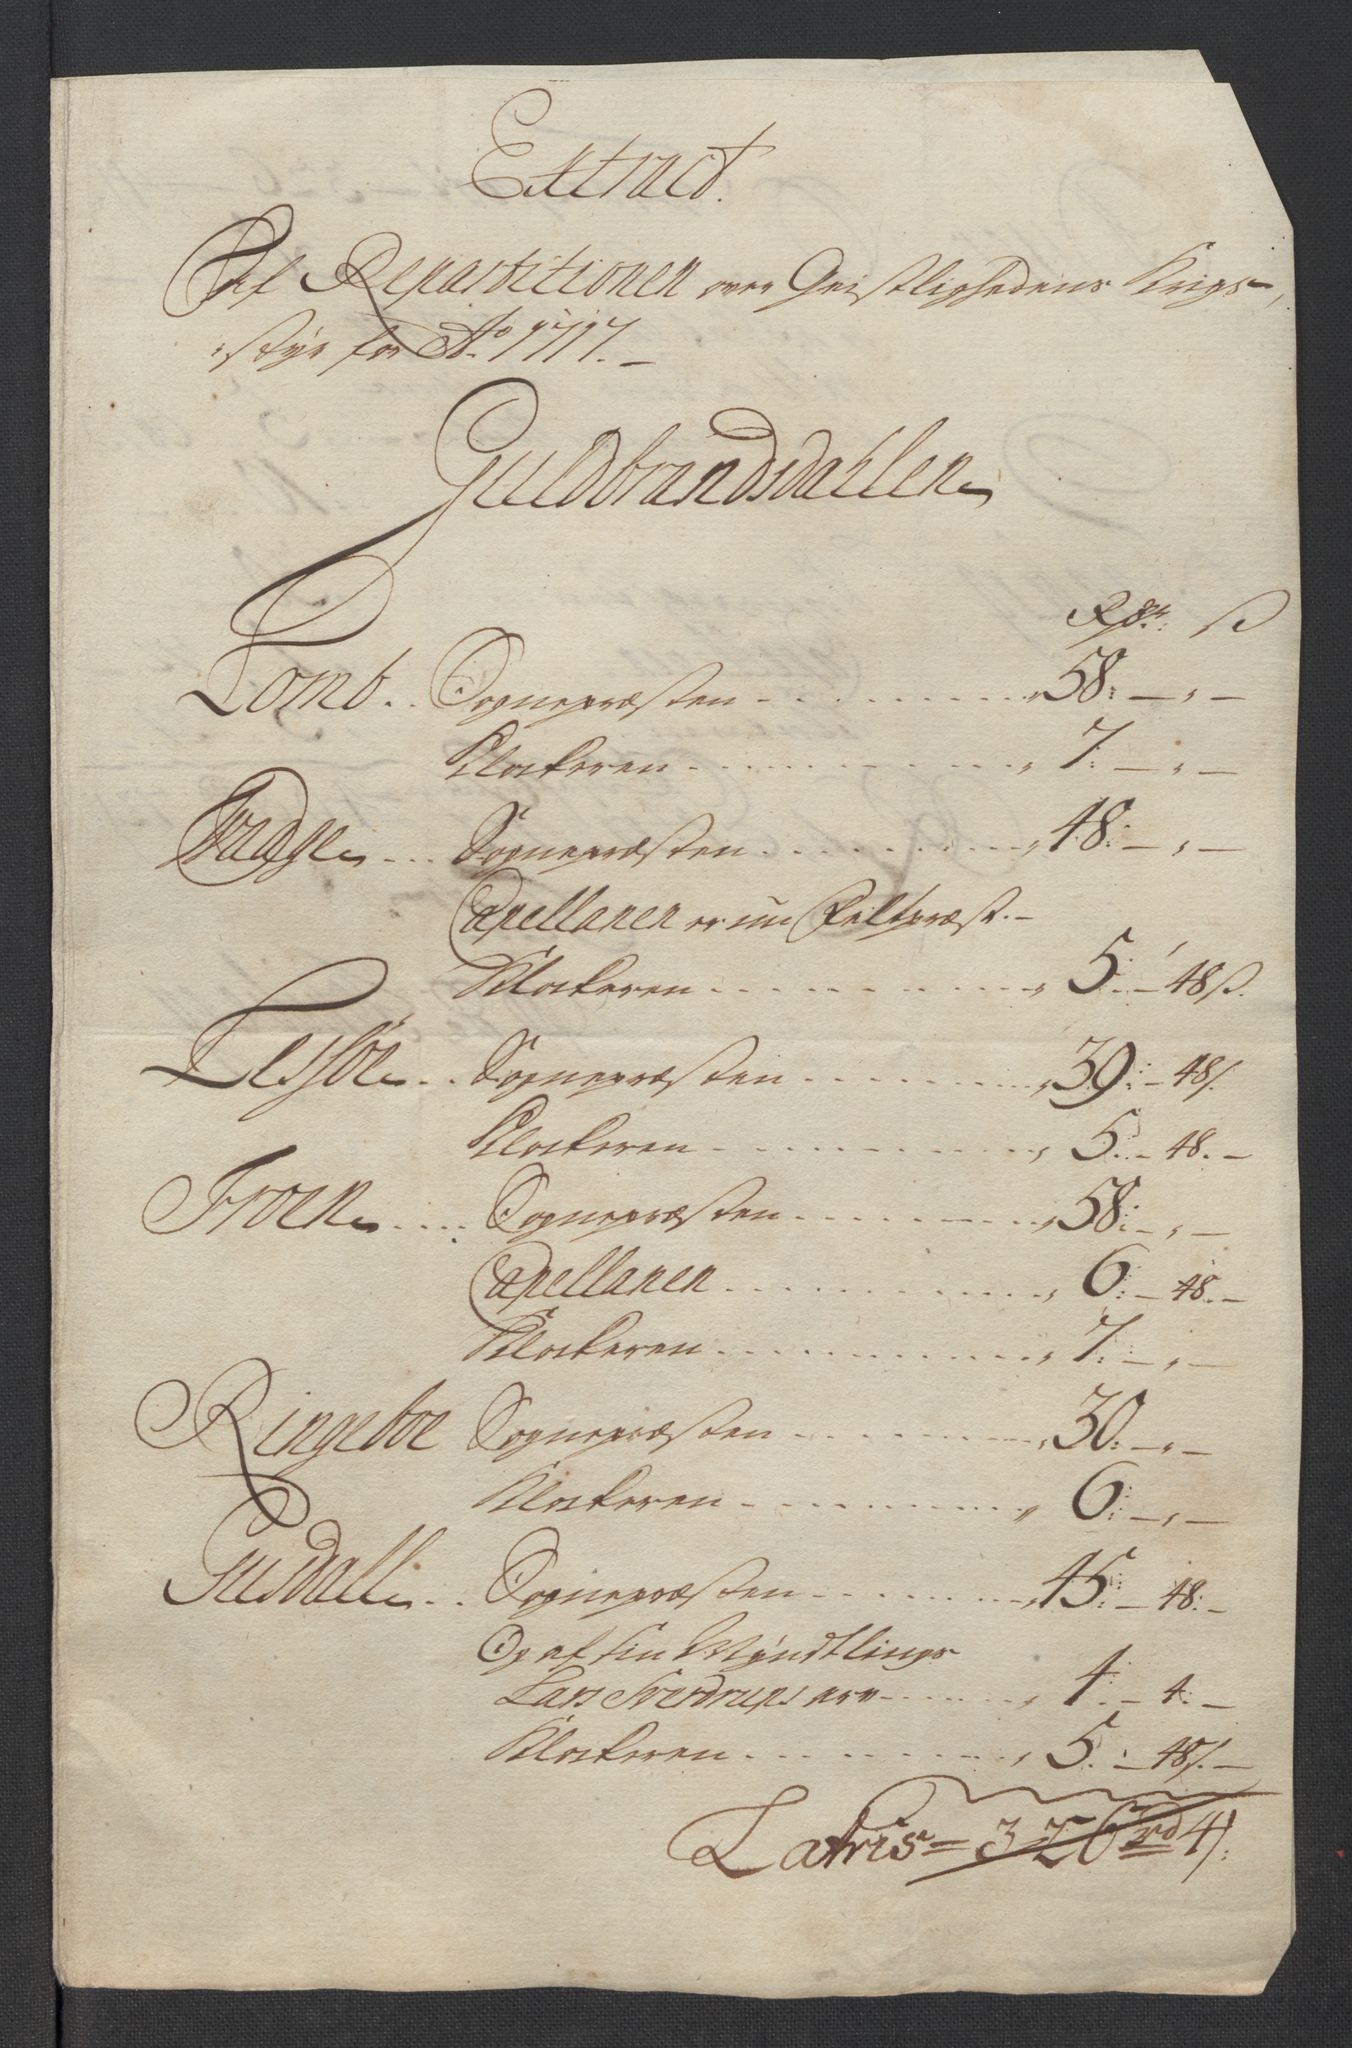 Extract.
Af Repartitionen over Geistlighedens Krigs-
:styr for Ao: 1717. –
Guldbrandsdahlen
Rdr: ß
Lomb.. Sognepræsten . . . . . . . . 58: – „ –
Klockeren . . . . . . . . 7: – „ –
Waage ... Sognepræsten . . . . . . . . 48: – „ –
Capellanen er nu Feltpræst. –
Klockeren . . . . . . . . 5: – 48 ß.
Lessøe .. Sognepræsten . . . . . . . . 39: – 48 ß.
Klockeren . . . . . . . . 5: – 48. –
Froen .... Sognepræsten . . . . . . . . 58: – „ –
Capellanen . . . . . . . . 6: – 48. –
Klockeren . . . . . . . . 7: – „ –
Ringeboe Sognepræsten . . . . . . . . 30: – „ –
Klockeren . . . . . . . . 6: – „ –
Gusdall .. Sognepræsten . . . . . . . . 45: – 48: –
Og af sin Myndtlings
Lars Sverdrups arv . . . . . 4: – 4: –
Klockeren . . . . . . . . 5: – 48 ß. –
Latris = 326 rd 4 ß: